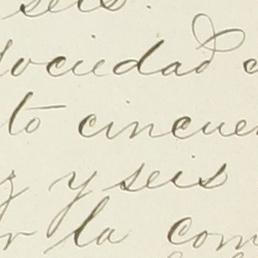 seis.
Sociedad
to cincuen
y seis
r la com